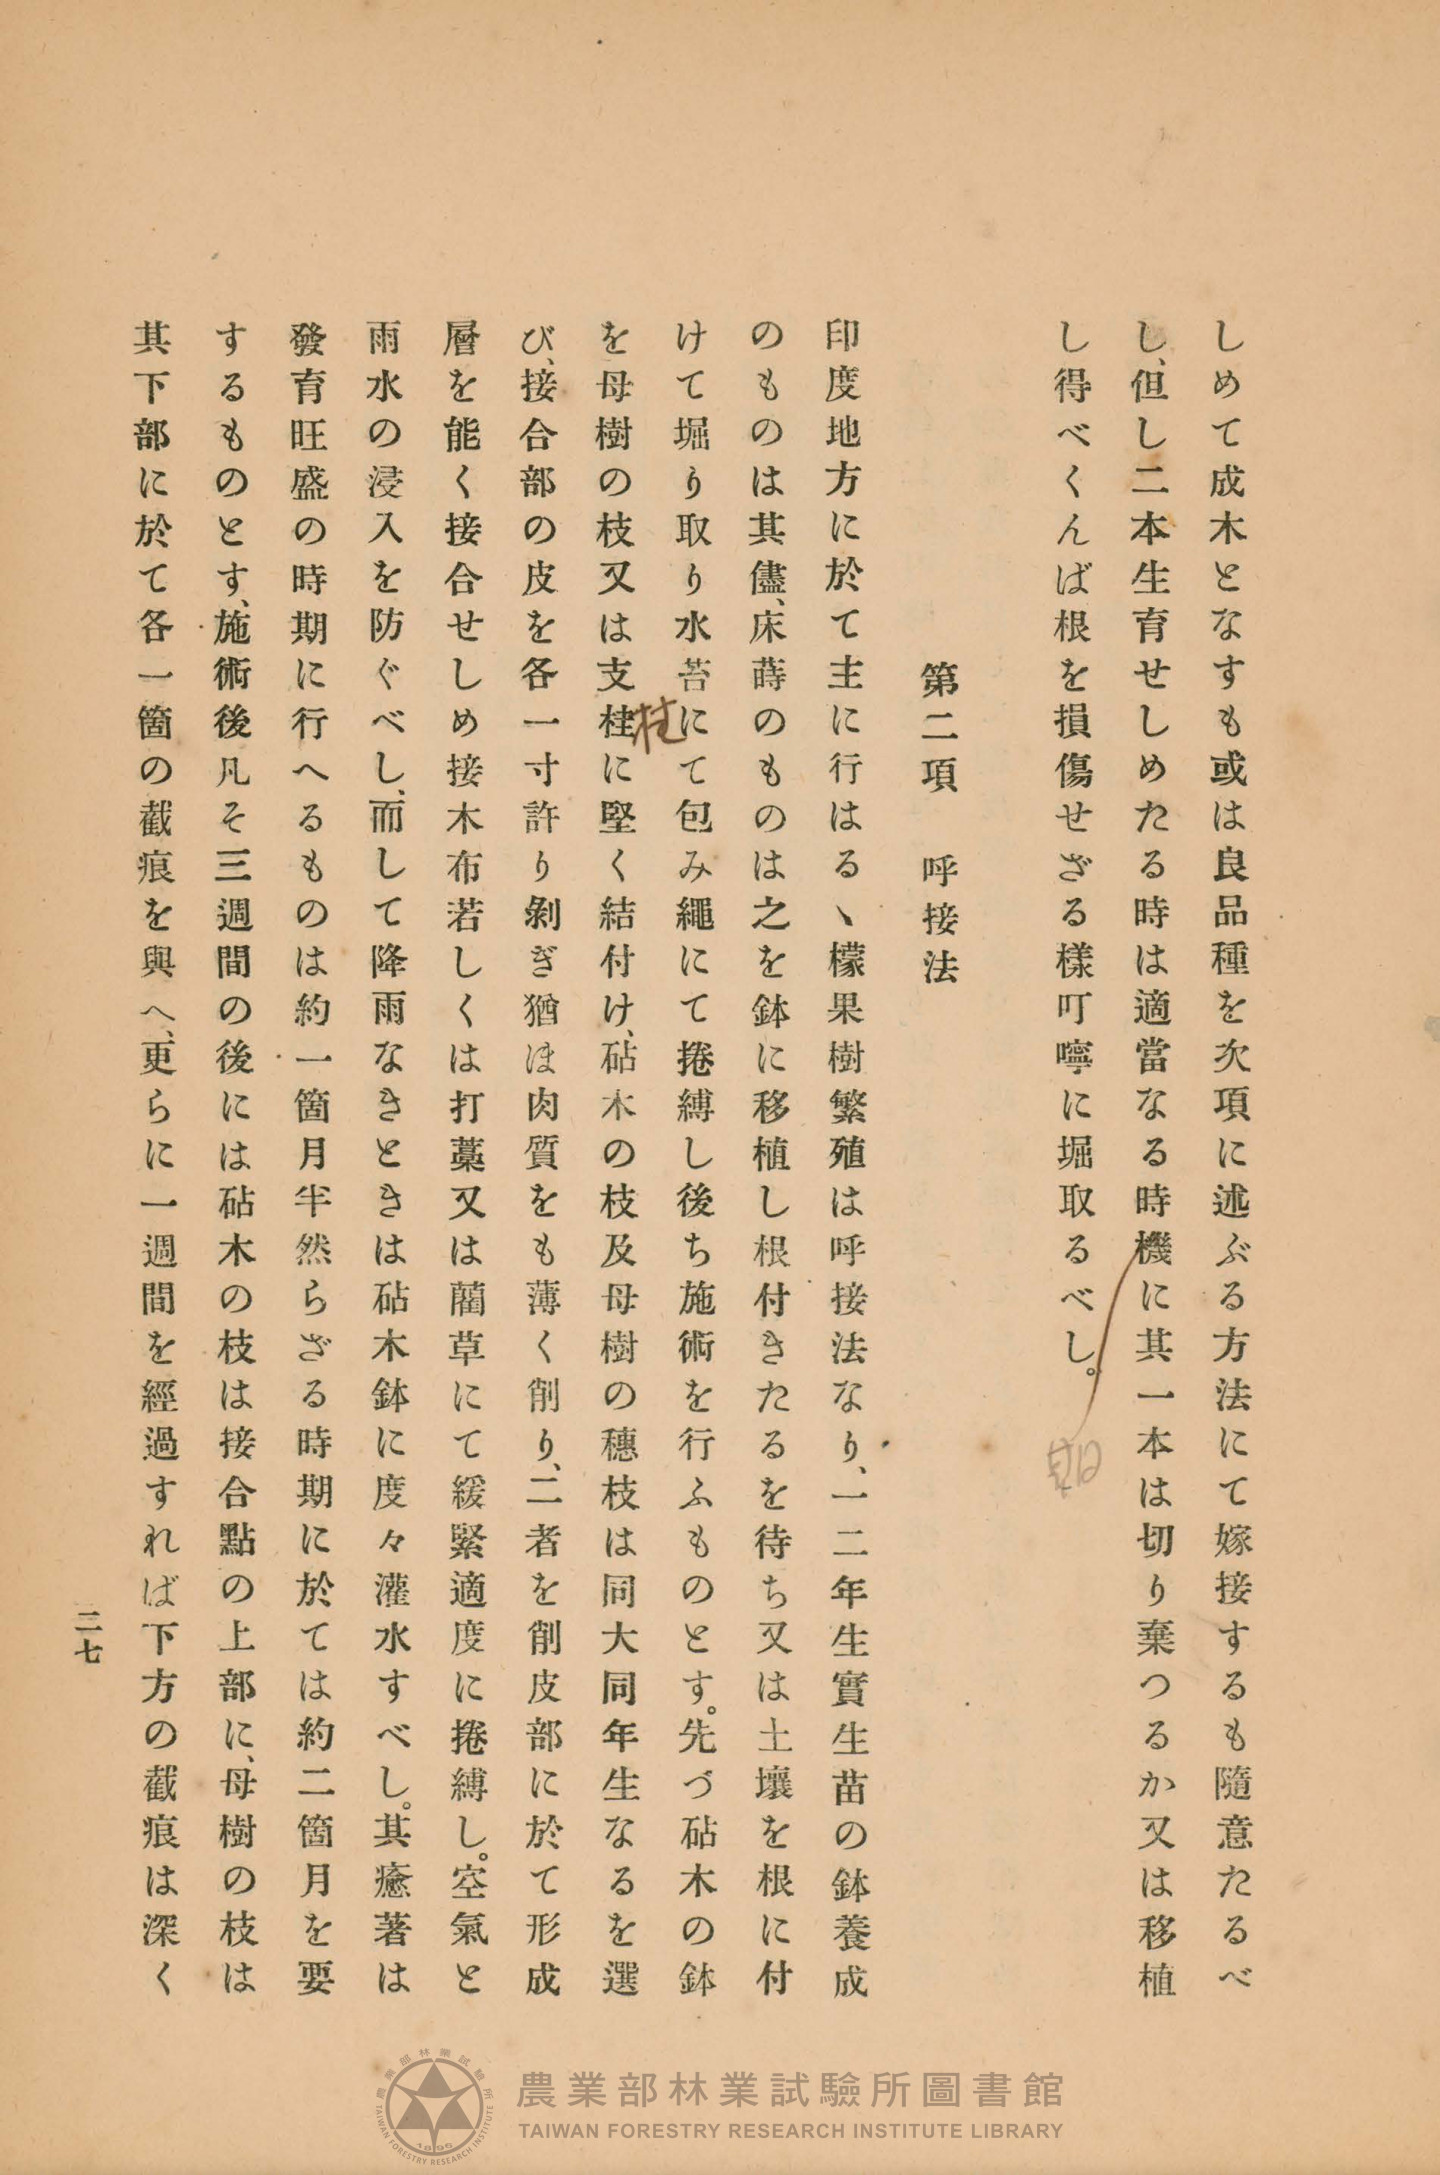 しめて成木となすも或は良品種を次項に述ぶる方法にて嫁接するも隨意たるべ
し、但し二本生育せしめたる時は適當なる時機に其一本は切り棄つるか又は移植
し得べくんば根を損傷せざる樣叮嚀に堀取るべし。
期
第二項 呼接法
印度地方に於て主に行はるヽ檬果樹繁殖は呼接法なり、一二年生實生苗の鉢養成
のものは其儘、床蒔のものは之を鉢に移植し根付きたるを待ち又は土壤を根に付
けて堀り取り水苔にて包み繩にて捲縛し後ち施術を行ふものとす。先づ砧木の鉢
柱
を母樹の枝又は支桂に堅く結付け、砧木の枝及母樹の穗枝は同大同年生なるを選
び、接合部の皮を各一寸許り剝ぎ猶ほ肉質をも薄く削り、二者を削皮部に於て形成
層を能く接合せしめ接木布若しくは打藁又は藺草にて緩緊適度に捲縛し。空氣と
雨水の浸入を防ぐべし、而して降雨なきときは砧木鉢に度々灌水すべし。其癒著は
發育旺盛の時期に行へるものは約一箇月半然らざる時期に於ては約二箇月を要
するものとす、施術後凡そ三週間の後には砧木の枝は接合點の上部に、母樹の枝は
其下部に於て各一箇の截痕を與へ、更らに一週間を經過すれば下方の截痕は深く
二七
農業部林業試驗所圖書館
TAIWAN FORESTRY RESEARCH INSTITUTE LIBRARY
農業部林業試驗所
TAIWAN FORESTRY RESEARCH INSTITUTE
1896